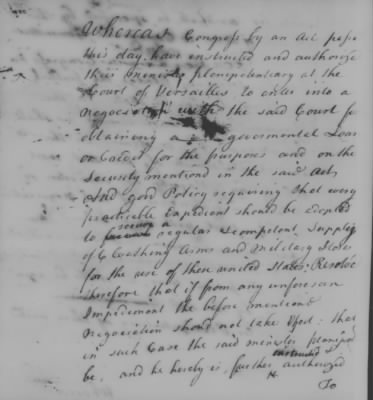 Whereas Congress by an Act pass
this day, have instructed and authorize
their minister plenipotentiary at the
Court of Versailles to enter into a
Negociation with the said Court for
obtaining a governmental Loan
or Credit for the purposes and on the
Security mentioned in the said Act,
And good Policy requiring that every
practicable Expedient should be adopted
to secure a regular & competent Supply
of Cloathing Arms and Military Stores
for the use of these united States: Resolve
therefore that if from any unforeseen
Impediment the before mentioned
Negociation should not take Effect: that
in such Case the said minister plenipo
be, and he hereby is, further instructed & authorized
To